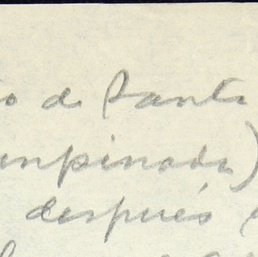 o de Santa
mpinada)
después (